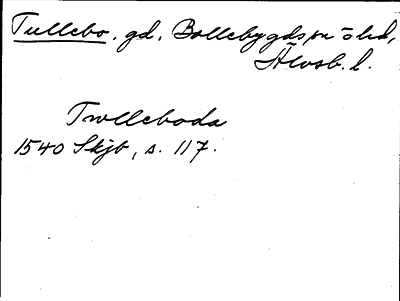 Tullebo, gd, Bollebygds sn o hd,
Älvsb. l.
Twlleboda
1540 Skjb, s. 117.